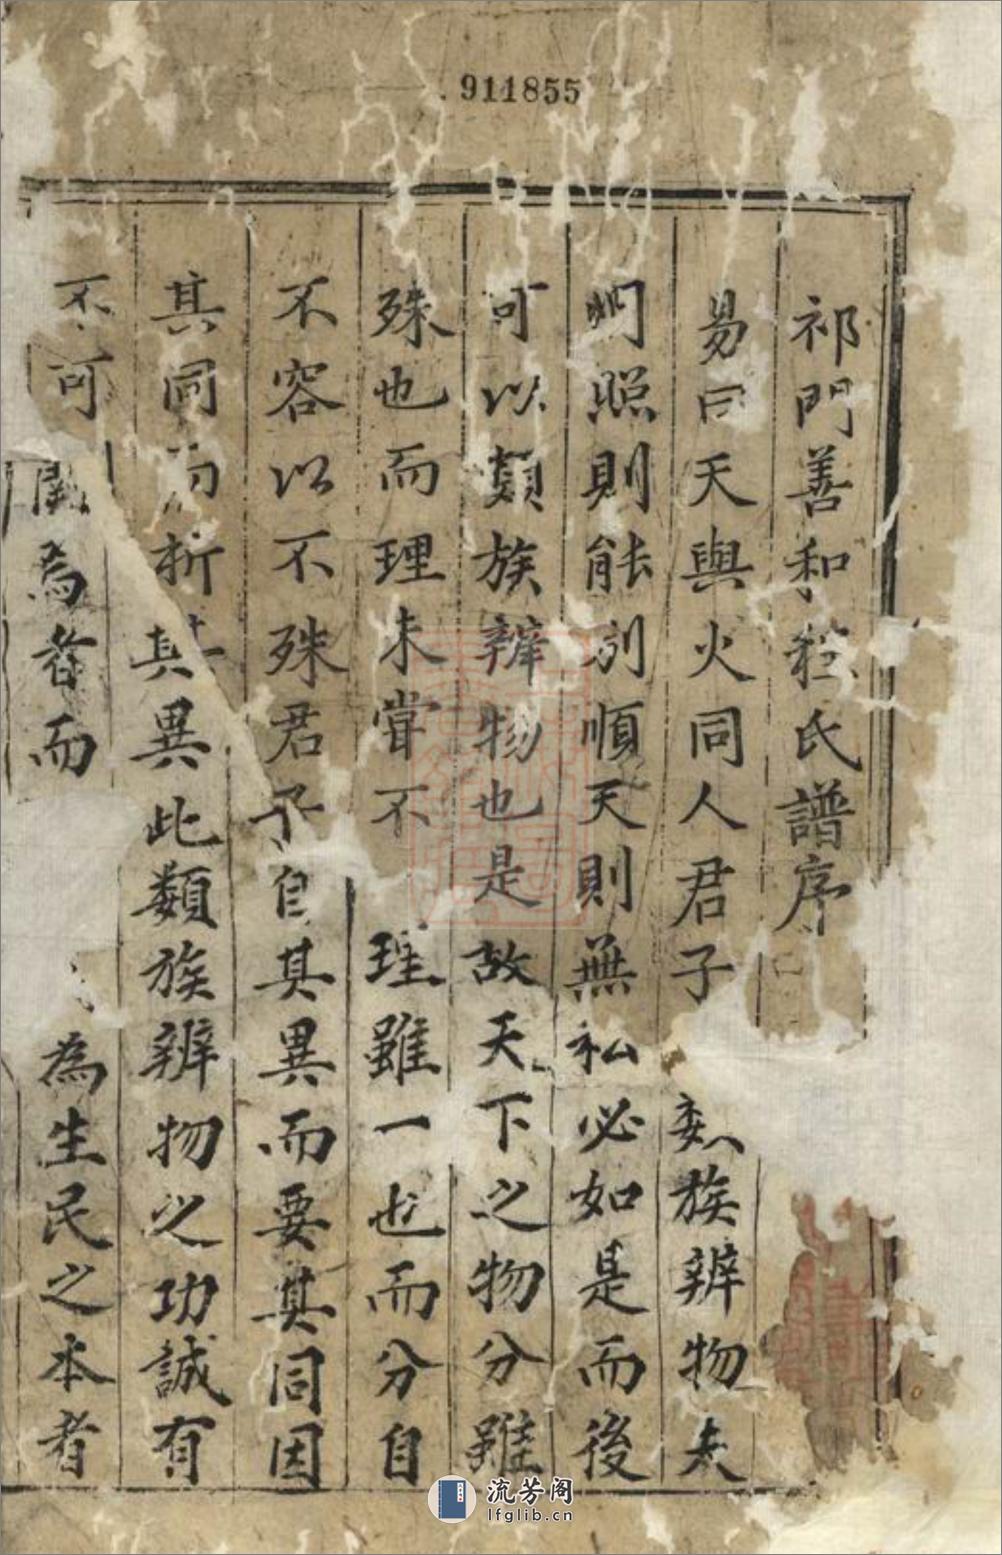 911855
祁門善和程氏譜序
易曰天與火同人君子 類族辨物夫
明照則能別順天則無私必如是而後
可以類族辨物也是故天下之物分雖
殊也而理未嘗不 理雖一也而分自
不容以不殊君子自其異而要其同因
其同而析其異此類族辨物之功誠有
不可 為者而 為生民之本者
流芳阁
lfglib.cn